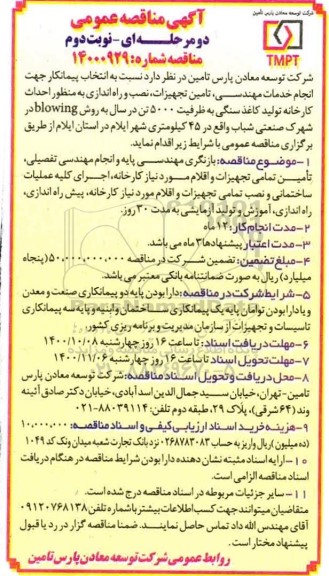 شرکت توسعه معادن پارس تأمین
TMPT
آگهی مناقصه عمومی
دو مرحله ای - نوبت دوم
مناقصه شماره: ۱۴۰۰۰۹۲۹
شرکت توسعه معادن پارس تامین در نظر دارد نسبت به انتخاب پیمانکار جهت
انجام خدمات مهندسی، تامین تجهیزات، نصب و راه اندازی به منظور احداث
کارخانه تولید کاغذ سنگی به ظرفیت ۵۰۰۰ تن در سال به روش blowing در
شهرک صنعتی شباب واقع در ۴۵ کیلومتری شهر ایلام در استان ایلام از طریق
برگزاری مناقصه عمومی با شرایط زیر اقدام نماید.
۱- موضوع مناقصه: بازنگری مهندسی پایه و انجام مهندسی تفصیلی،
تأمین تمامی تجهیزات و اقلام مورد نیاز کارخانه، اجرای کلیه عملیات
ساختمانی و نصب تمامی تجهیزات و اقلام مورد نیاز کارخانه، پیش راه اندازی،
راه اندازی، آموزش و تولید آزمایشی به مدت ۳۰ روز.
۲- مدت انجام کار: ۱۲ ماه
۳- مدت اعتبار پیشنهادها ۳ ماه می باشد.
۴- مبلغ تضمین: تضمین شرکت در مناقصه ۵۰،۰۰۰،۰۰۰،۰۰۰ (پنجاه
میلیارد) ریال به صورت ضمانتنامه بانکی معتبر می باشد.
۵- شرایط شرکت در مناقصه: دارا بودن پایه دو پیمانکاری صنعت و معدن
و یا دارا بودن توامان پایه یک پیمانکاری ساختمان و ابنیه و پایه سه پیمانکاری
تاسیسات و تجهیزات از سازمان مدیریت و برنامه ریزی کشور.
۶- مهلت دریافت اسناد: تا ساعت ۱۶ روز چهارشنبه ۱۴۰۰/۱۰/۰۸
۷- مهلت تحویل اسناد: تا ساعت ۱۶ روز چهارشنبه ۱۴۰۰/۱۱/۰۶
۸- محل دریافت و تحویل اسناد مناقصه: شرکت توسعه معادن پارس
تامین - تهران، خیابان سید جمال الدین اسدآبادی، خیابان دکتر صادق آئینه
وند (۶۴ شرقی)، پلاک ۲۹، طبقه دوم تلفن: ۸۸۰۳۹۱۱۴-۰۲۱
۹- هزینه خرید اسناد ارزیابی کیفی و اسناد مناقصه: ۱۰،۰۰۰،۰۰۰
(ده میلیون) ریال واریز به حساب ۰۲۶۸۷۸۳۰۸۳ نزد بانک تجارت شعبه میدان ونک کد ۱۰۴۹
۱۰- ارایه اسناد مثبته نشان دهنده دارا بودن شرایط مناقصه در هنگام دریافت
اسناد مناقصه الزامی است.
۱۱- سایر جزئیات مربوطه در اسناد مناقصه درج شده است.
متقاضیان میتوانند جهت کسب اطلاعات بیشتر با شماره تلفن ۰۹۱۲۰۷۶۸۱۳۸
آقای مهندس الله داد تماس حاصل نمایند. ضمنا مناقصه گزار در رد یا قبول
پیشنهاد مختار است.
روابط عمومی شرکت توسعه معادن پارس تامین